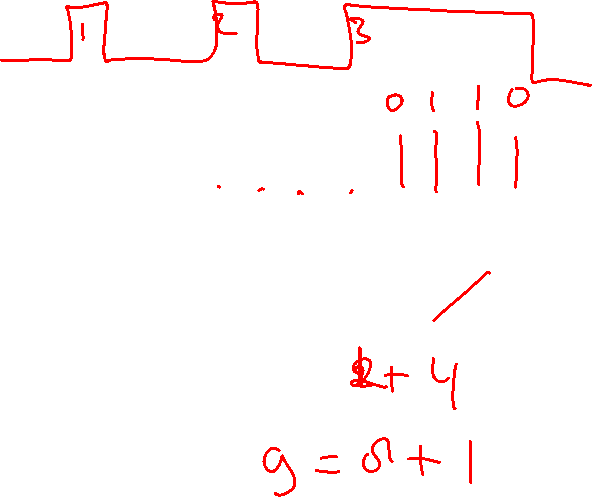 1 2 3
0 1 1 0
2 + 4
9 = 8 + 1